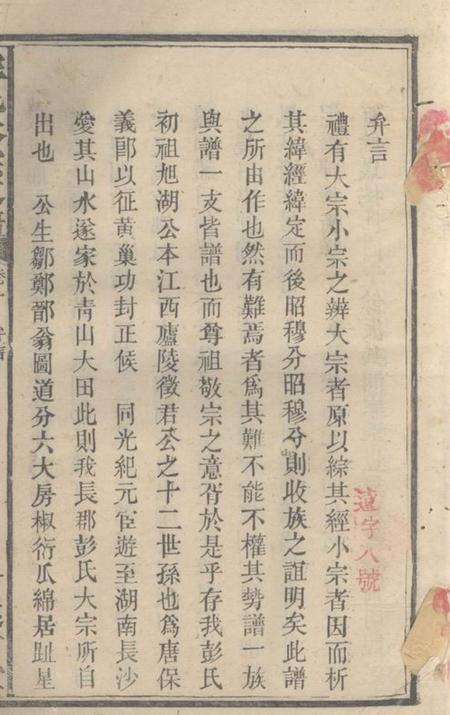 弁言
禮有大宗小宗之辨大宗者原以綜其經小宗者因而析
其緯經緯定而後昭穆分昭穆分則收族之誼明矣此譜
之所由作也然有難焉者爲其難不能不權其勢譜一族
與譜一支皆譜也而尊祖敬宗之意胥於是乎存我彭氏
初祖旭湖公本江西廬陵徵君公之十二世孫也爲唐保
義郎以征黃巢功封正候 同光紀元宦遊至湖南長沙
愛其山水遂家於靑山大田此則我長郡彭氏大宗所自
出也 公生鄒鄭鄑翁圖道分六大房椒衍瓜綿居趾星
遠字八號